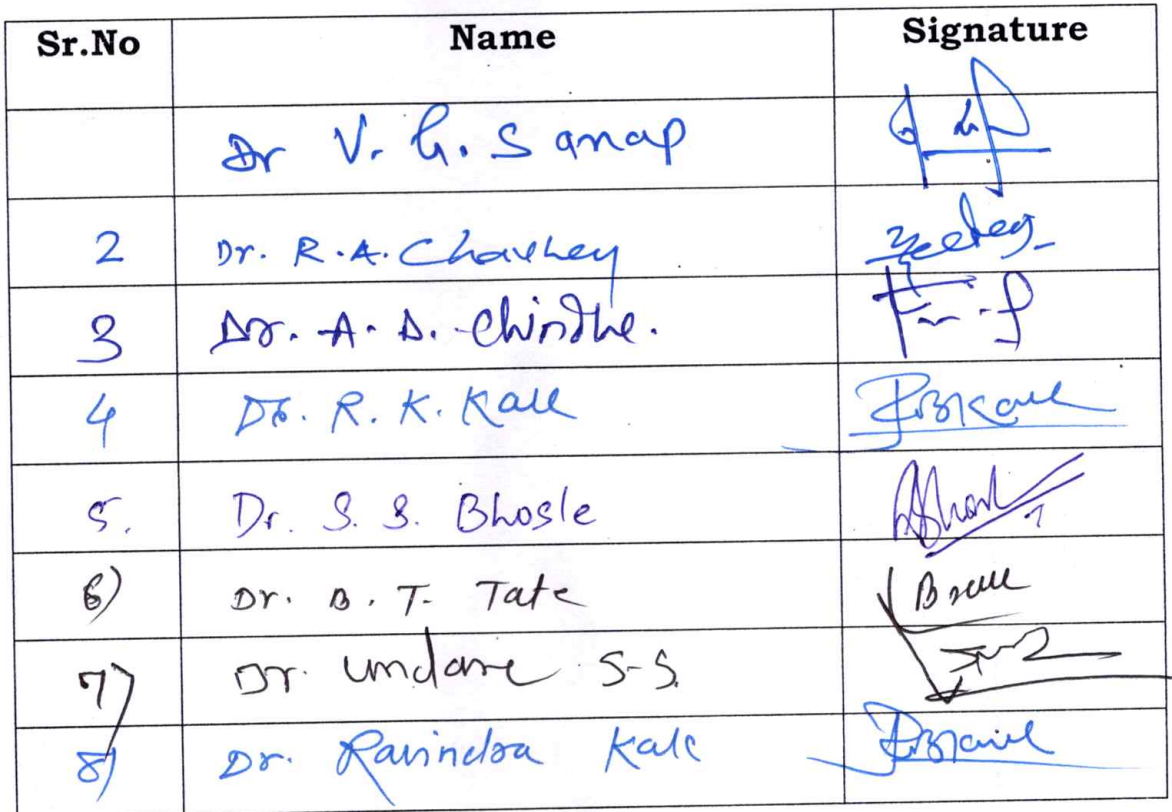 Sr.No Name Signature
Dr V. G. Sanap
2 Dr. R.A. Chavhey
3 Dr. A. D. Chindhe.
4 Dr. R. K. Kale
5. Dr. S. S. Bhosle
6) Dr. B. T. Tate
7) Dr. Undare S-S.
8) Dr. Ravindra Kale